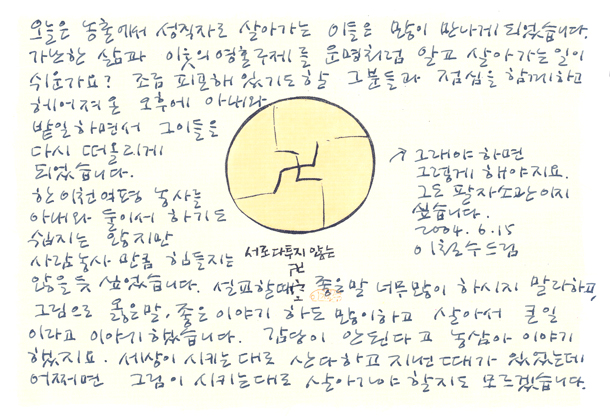 오늘은 농촌에서 성직자로 살아가는 이들을 많이 만나게 되었습니다.
가난한 삶과 이웃의 영혼구제를 운명처럼 알고 살아가는 일이
쉬운가요? 조금 피폐해 있기도 할 그분들과 점심을 함께하고
헤어져 온 오후에 아내와
밭일 하면서 그이들을
다시 떠올리게
되었습니다.
한 이천여평 농사는
아내와 둘이서 하기도
쉽지는 않지만
사람농사 만큼 힘들지는
않을듯 싶었습니다. 설교할때 좋은말 너무많이 하시지 말라하고,
그림으로 옳은말, 좋은 이야기 하도 많이하고 살아서 큰일
이라고 이야기 했습니다. 감당이 안된다고 농삼아 이야기
했지요. 세상이 시키는대로 산다하고 지낸 때가 있었는데
어쩌면 그림이 시키는대로 살아가야 할지도 모르겠습니다.
서로 다투지 않는
↗ 그래야 하면
그렇게 해야지요.
그도 팔자소관이지
싶습니다.
2004. 6. 15
이철수드림